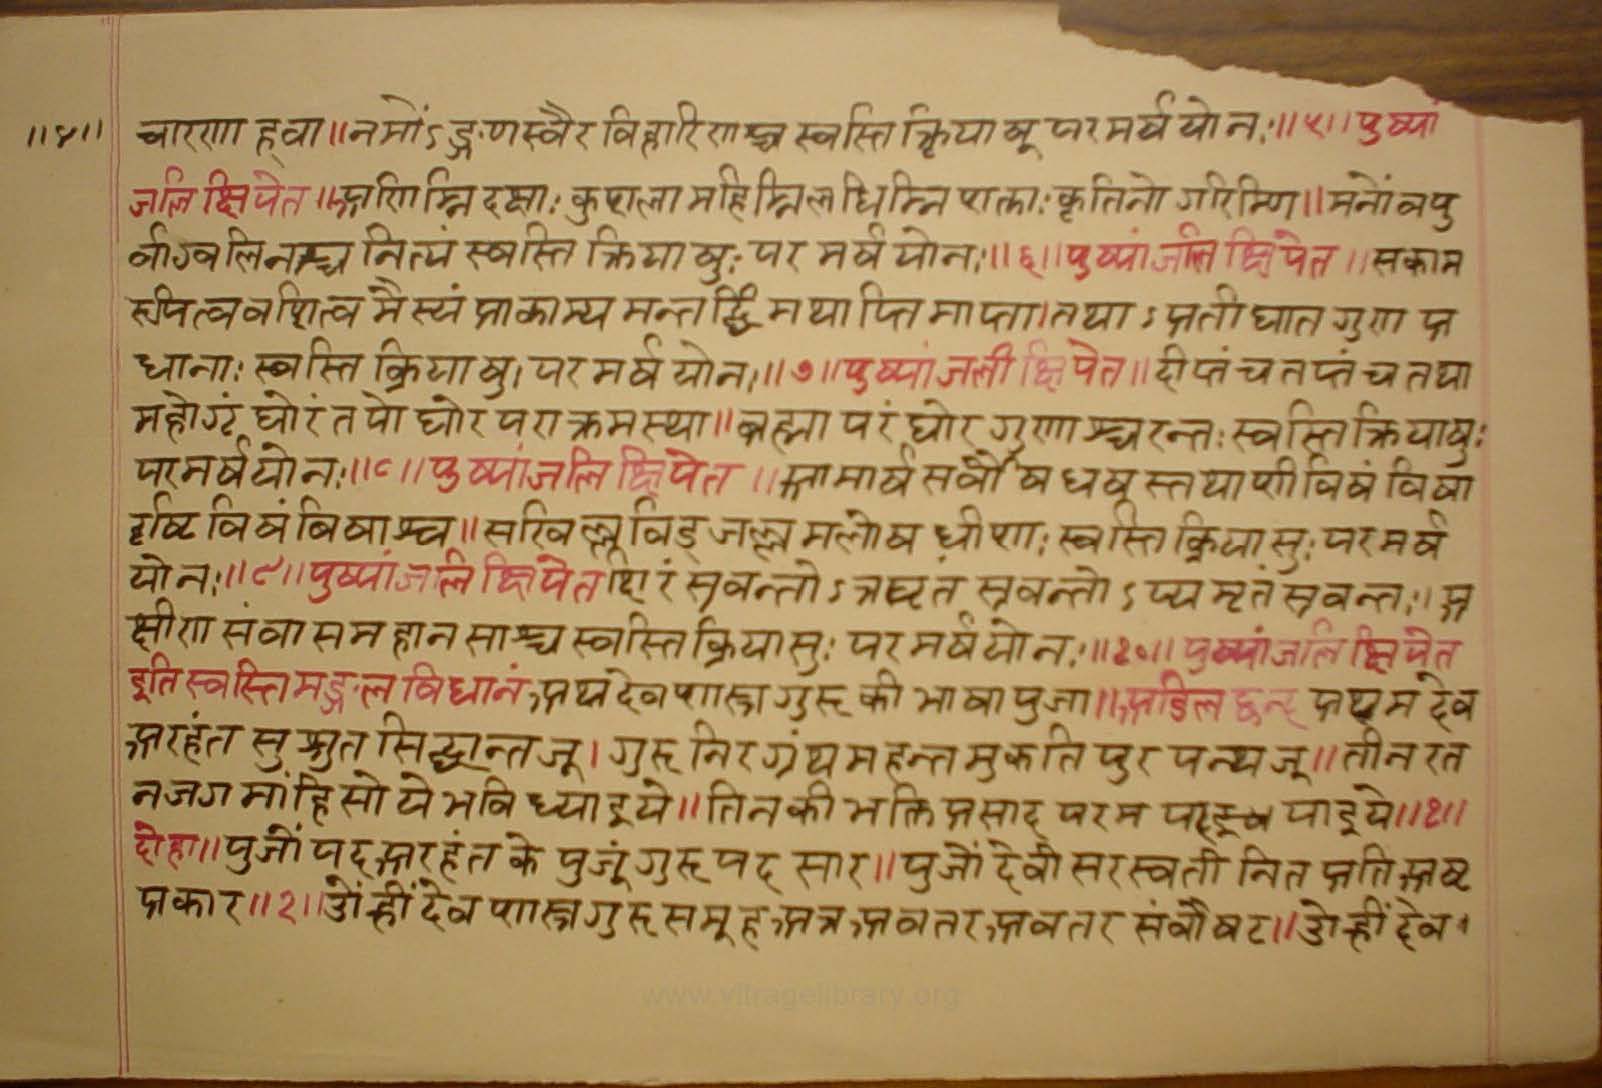 ॥४॥ चारणा ह्वा॥नमोंऽङ्गणस्वैर विहारिणाश्च स्वस्ति क्रियाषू परमर्ष योनः॥५॥पुष्पां
जलि क्षिपेत॥अणिम्नि दक्षाः कुशला महिम्नि लघिम्नि शक्ताः कृतिनो गरिम्णि॥मनों वपु
र्वाग्वलिनश्च नित्यं स्वस्ति क्रियाषुः पर मर्ष योनः॥६॥पुष्पां जलि क्षिपेत॥सकाम
रुपित्व वशित्व मैस्यं प्राकाम्य मन्तर्द्धि मथाप्ति माप्ता।तथाऽप्रती घात गुण प्र
धानाः स्वस्ति क्रियाषु। पर मर्ष योनः॥७॥पुष्पां जली क्षिपेत॥दीप्तं च तप्तं च तथा
महोग्रं घोरं तपो घोर परा क्रमस्था॥ब्रह्मा परं घोर गुणाश्चरन्तः स्वस्ति क्रियाषुः
परमर्षयोनः॥८॥पुष्पांजलि क्षिपेत॥आमार्ष सर्वौषधषू स्तथाशी विषं विषा
दृष्टि विषं विषाश्च॥सखिल्ल विड् जल्ल मलोष धीशाः स्वस्ति क्रियासुः परमर्ष
योनः॥९॥पुष्पांजलि क्षिपेत क्षिरं स्रवन्तोऽत्रघृतं स्रवन्तोऽप्यमृतं स्रवन्तः।अ
क्षीण संवास महानसाश्च स्वस्ति क्रियासुः पर मर्षयोनः॥१०॥पुष्पांजलि क्षिपेत
इति स्वस्ति मङ्गल विधानं,अथ देव शास्त्र गुरू की भाषा पुजा॥अडिल छन्द प्रथम देव
अरहंत सु श्रुत सिद्धान्त जू।गुरू निरग्रंथ महन्त मुकति पुर पन्थ जू॥तीन रत
न जग मांहि सो ये भवि ध्याइये॥तिनकी भक्ति प्रसाद परम पद पाइये॥१॥
दोहा॥पुजों पद अरहंत के पुजूं गुरू पद सार॥पुजों देवी सरस्वती नित प्रति अष्ट
प्रकार॥२॥ओं ह्रीं देव शास्त्र गुरू समूह,अत्र,अवतर,अवतर संवौषट॥ओ ह्रीं देव
www.vitragelibrary.org